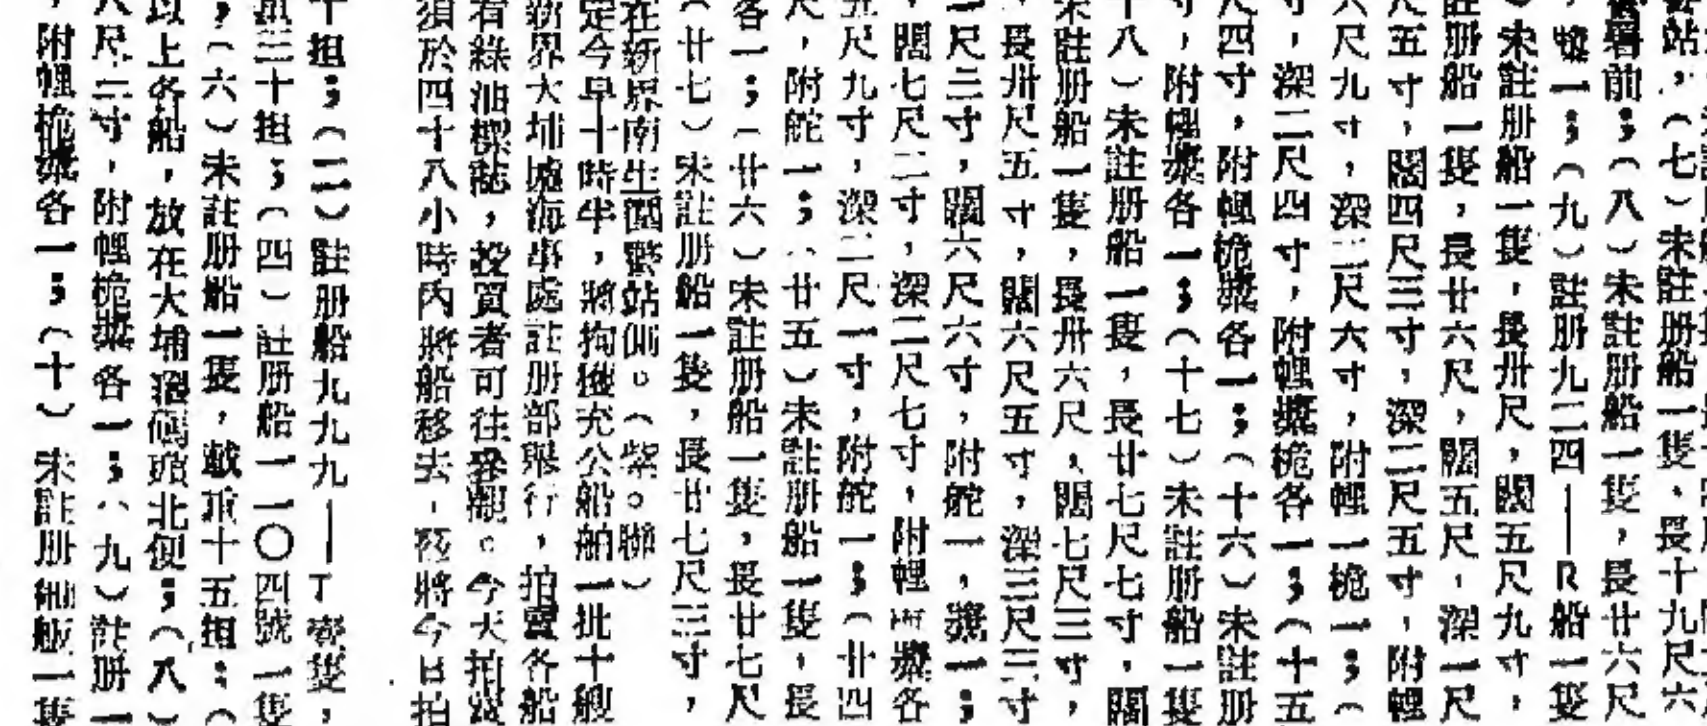 站,(七)未註册船一隻,長十九尺六
署前;(八)未註册船一隻,長廿六尺
,槳一;(九)註册九二四——R船一隻
)未註册船一隻,長卅尺,闊五尺九寸,
註册船一隻,長廿六尺,闊五尺,深一尺
尺五寸,闊四尺三寸,深二尺五寸,附幌
六尺九寸,深二尺六寸,附幌一桅一;(
寸,深二尺四寸,附幌槳桅各一;(十五
尺四寸,附幌桅槳各一;(十六)未註册
寸,附幌槳各一;(十七)未註册船一隻
十八)未註册船一隻,長廿七尺七寸,闊
未註册船一隻,長卅六尺,闊七尺三寸,
,長卅尺五寸,闊六尺五寸,深三尺三寸
一尺三寸,闊六尺六寸,附舵一,槳一;
,闊七尺二寸,深二尺七寸,附幌桅槳各
五尺九寸,深二尺一寸,附舵一;(廿四
尺,附舵一;(廿五)未註册船一隻,長
各一;(廿六)未註册船一隻,長廿七尺
(廿七)未註册船一隻,長廿七尺三寸,
在新界南生圍警站側。(紫。聯)
定今早十時半,將拘獲充公船舶一批十艘
新界大埔墟海事處註册部舉行,拍賣各船
有綠油標誌,投買者可往參觀。今天拍賣
須於四十八小時內將船移去,茲將今日拍
十担;(二)註册船九九九——丁壹隻,
三十担;(四)註册船一一〇四號一隻
;(六)未註册船一隻,載重十五担;(
以上各船,放在大埔滘碼頭北便;(八)
八尺二寸,附幌桅槳各一;(九)註册一
,附幌桅槳各一;(十)未註册舢舨一隻